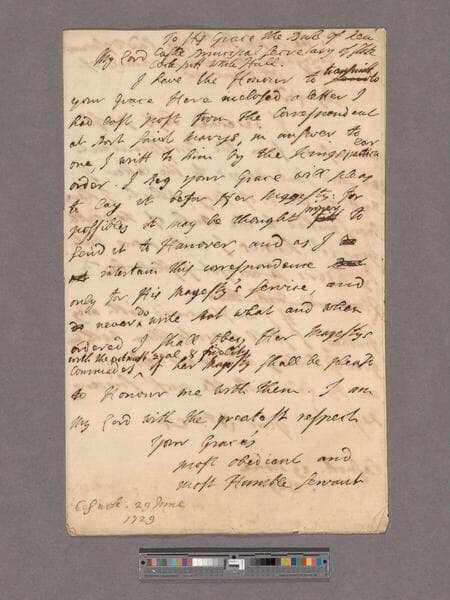 To His Grace the Duke of New
Castle Principal Secretary of State
My Lord Cock pitt White Hall.
I have the Honour to transmitt
your Grace Here inclosed a letter I
had last post from the Correspondent
at Port Saint Marys, in answer to
one, I writt to him by the Kings particular
order. I beg your Grace will pleas
to lay it befor Her Majesty: for
possiblie it may be thought proper to
send it to Hanover and as I
intertain this correspondence
only for His Majesty's service, and
never do write but what and when
ordered I shall obey Her Majestys
with the outmost zeal & fidelity
Commands, if her Majesty shall be pleas'd
to Honour me with them. I am
My Lord with the greatest respect
Your Grace's
most obedient and
most Humble servant
29 June
1729